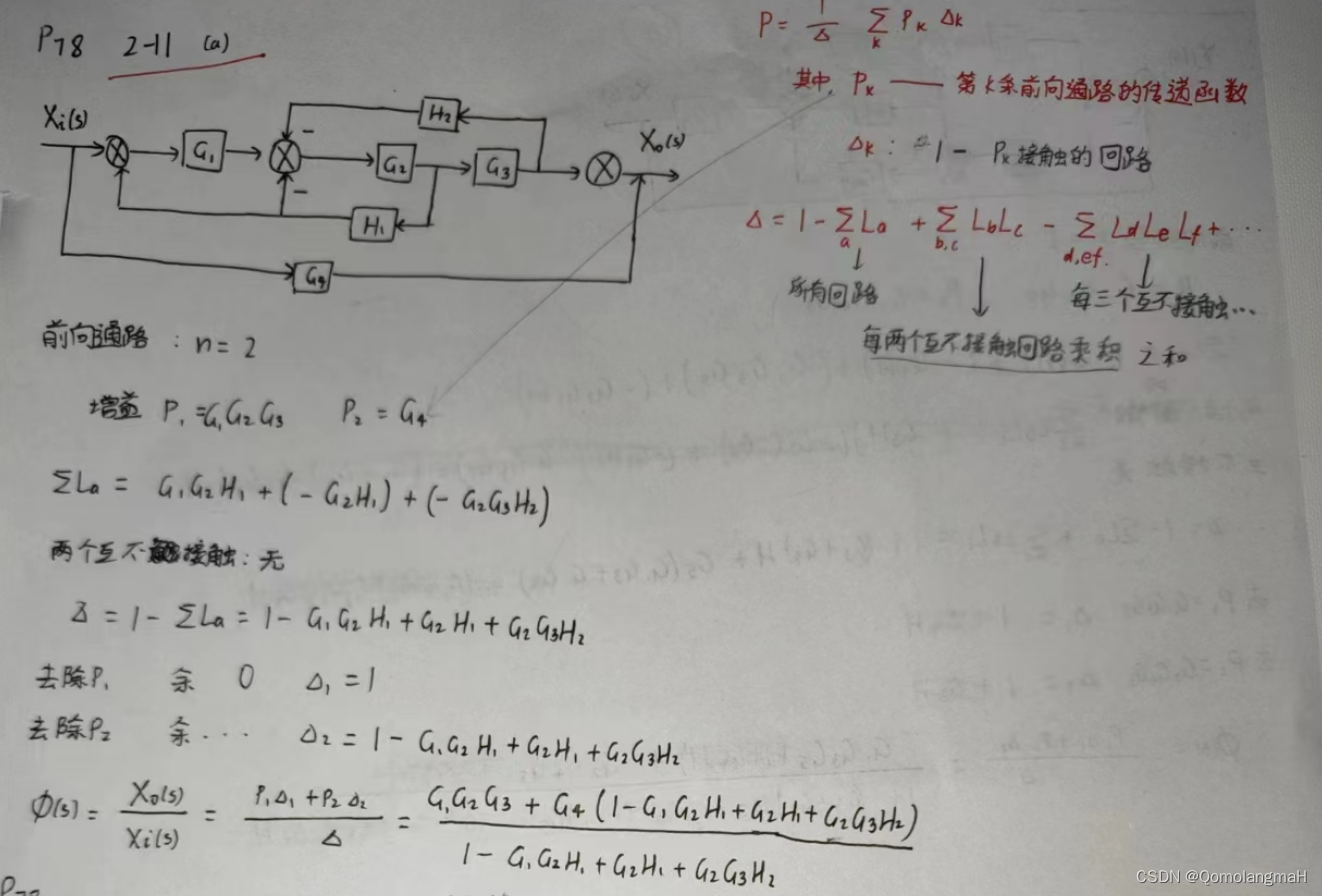 P78 2-11 (a)
P = 1/Δ Σ_k P_k Δ_k
其中, P_k —— 第k条前向通路的传递函数
Δ_k: 1 - P_k接触的回路
Δ = 1 - Σ_a L_a + Σ_b,c L_b L_c - Σ_d,e,f. L_d L_e L_f + ···
所有回路
每三个互不接触···
每两个互不接触回路乘积 之和
Xi(s)
G₁
H₂
-
G₂
G₃
Xo(s)
-
H₁
G₄
前向通路: n = 2
增益 P₁ = G₁G₂G₃ P₂ = G₄
ΣLa = G₁G₂H₁ + (-G₂H₁) + (-G₂G₃H₂)
两个互不接触: 无
Δ = 1 - ΣLa = 1 - G₁G₂H₁ + G₂H₁ + G₂G₃H₂
去除P₁ 余 0 Δ₁ = 1
去除P₂ 余··· Δ₂ = 1 - G₁G₂H₁ + G₂H₁ + G₂G₃H₂
Φ(s) = Xo(s)/Xi(s) = (P₁Δ₁ + P₂Δ₂)/Δ = (G₁G₂G₃ + G₄(1 - G₁G₂H₁ + G₂H₁ + G₂G₃H₂))/(1 - G₁G₂H₁ + G₂H₁ + G₂G₃H₂)
CSDN @QomolangmaH